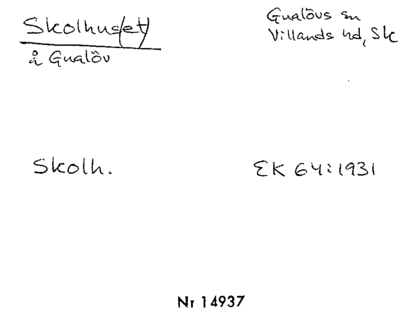 Skolhus(et)
å Gualöv
Gualövs sn
Villands hd, Sk
Skolh.
EK 64:1931
Nr 14937